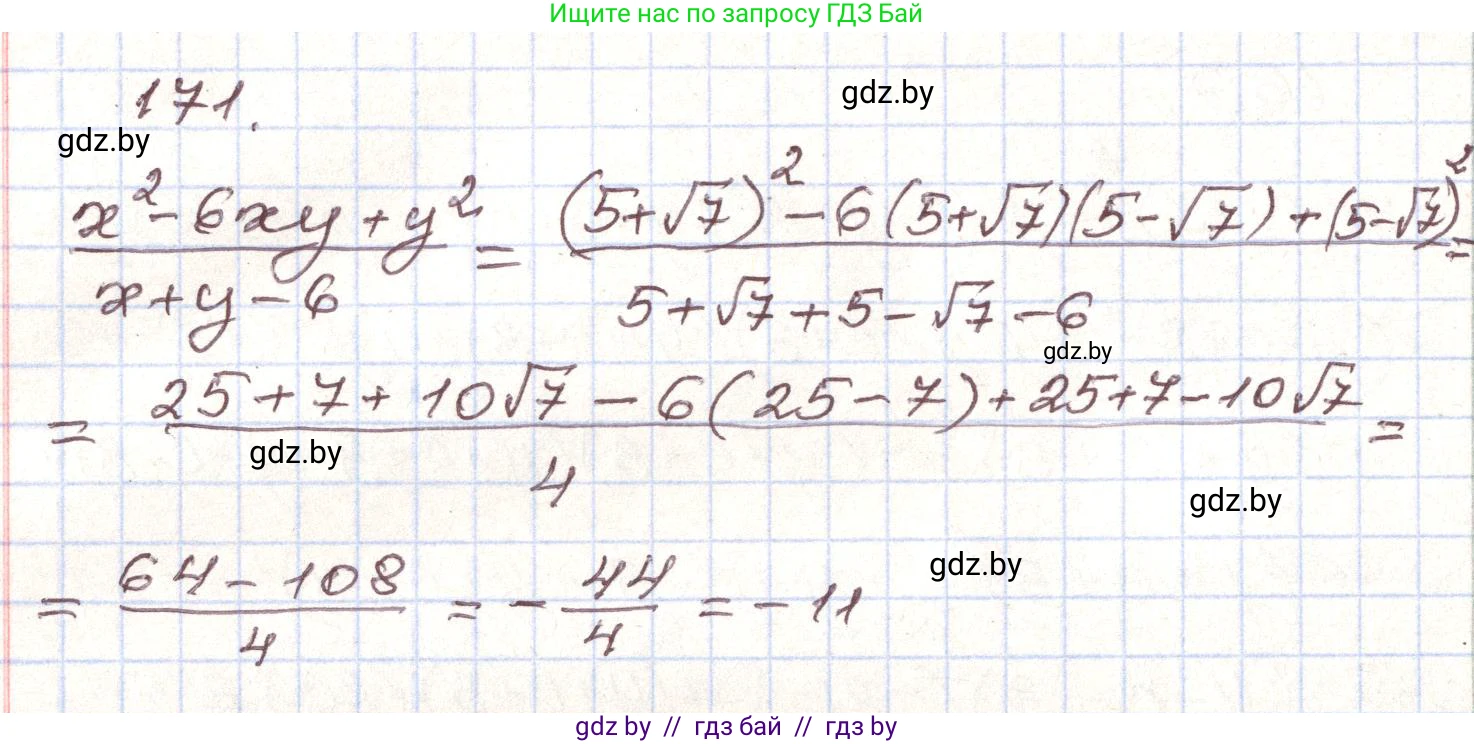 Ищите нас по запросу ГДЗ Бай
171.
gdz.by
gdz.by
(x² - 6xy + y²)/(x + y - 6) = ((5+√7)² - 6(5+√7)(5-√7) + (5-√7)²)/(5+√7+5-√7-6) =
gdz.by
= (25+7+10√7 - 6(25-7) + 25+7-10√7)/4 =
gdz.by
gdz.by
gdz.by
= (64-108)/4 = -44/4 = -11
gdz.by // гдз бай // гдз by